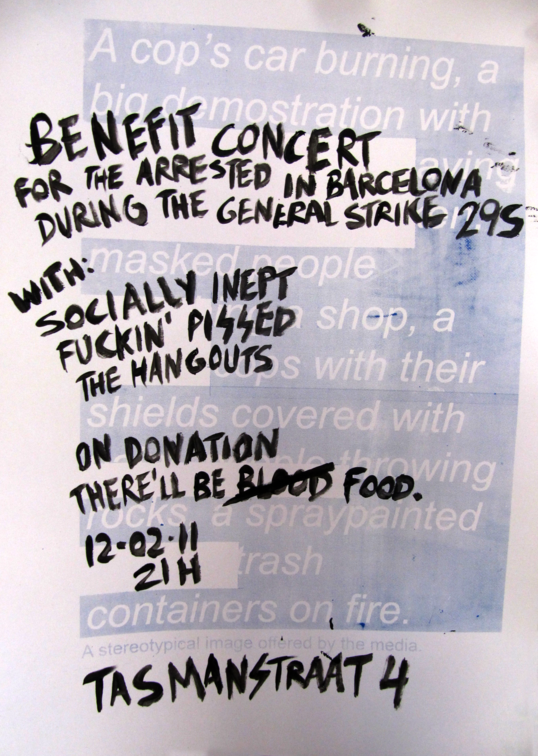 BENEFIT CONCERT
FOR THE ARRESTED IN BARCELONA
DURING THE GENERAL STRIKE 29S
WITH:
SOCIALLY INEPT
FUCKIN' PISSED
THE HANGOUTS
ON DONATION
THERE'LL BE BLOOD FOOD.
12-02-11
21H
TASMANSTRAAT 4
A cop's car burning, a
big demostration with
masked people
a shop, a
with their
shields covered with
throwing
rocks, a spraypainted
trash
containers on fire.
A stereotypical image offered by the media.